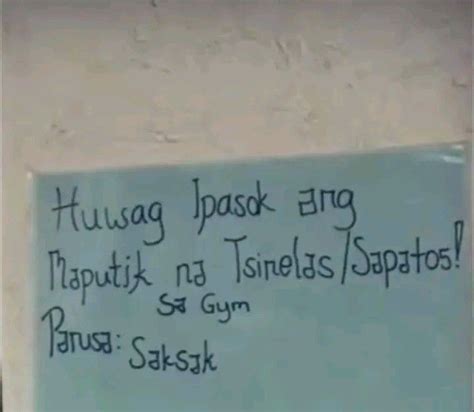 Huwag Ipasok ang
Maputik na Tsinelas/Sapatos!
Sa Gym
Parusa: Saksak